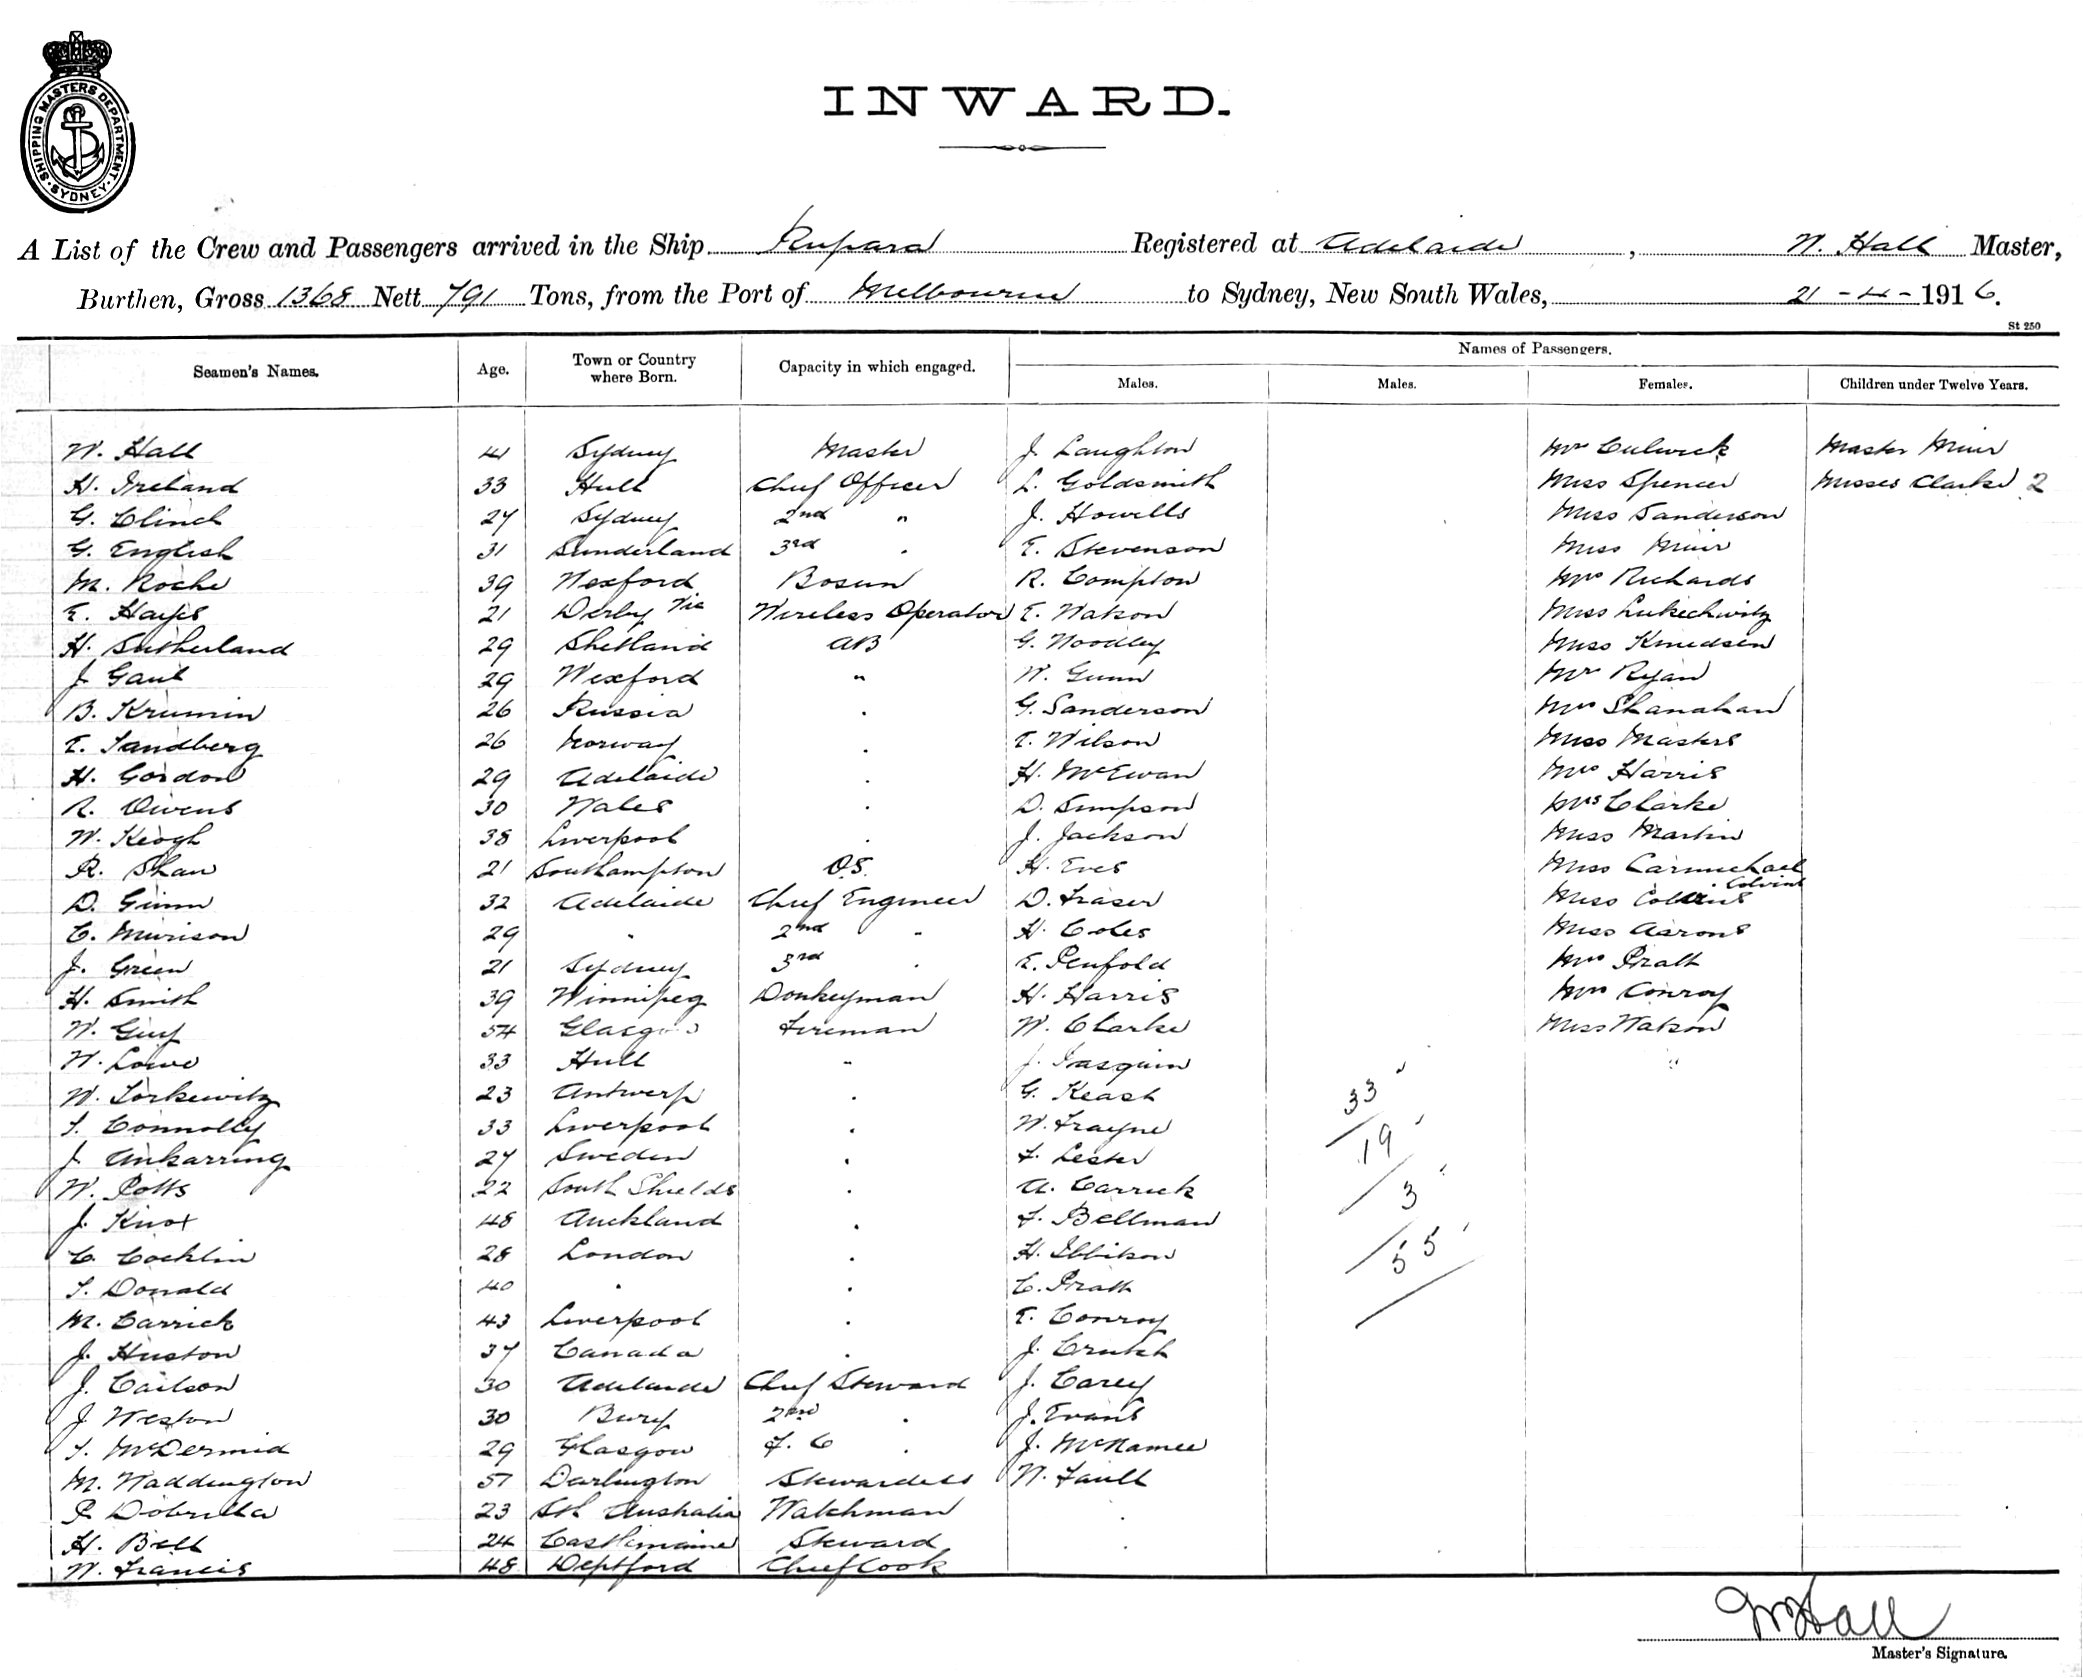 SHIPPING MASTERS DEPARTMENT
SYDNEY
INWARD.
A List of the Crew and Passengers arrived in the Ship Rupara Registered at Adelaide, W. Hall Master,
Burthen, Gross 1368 Nett 791 Tons, from the Port of Melbourne to Sydney, New South Wales, 21-4-1916.
St 250
Seamen's Names. Age. Town or Country where Born. Capacity in which engaged. Names of Passengers.
Males. Males. Females. Children under Twelve Years.
W. Hall 41 Sydney Master J. Laughton Mrs Culwick Master Muir
H. Ireland 33 Hull Chief Officer L. Goldsmith Miss Spencer Misses Clarke 2
G. Clinch 27 Sydney 2nd " J. Howells Miss Sanderson
G. English 31 Sunderland 3rd " E. Stevenson Miss Muir
M. Roche 39 Wexford Bosun R. Compton Mrs Richards
E. Hayes 21 Derby Vic Wireless Operator E. Watson Miss Lukechwitz
H. Sutherland 29 Shetland AB G. Woodley Miss Knudsen
J. Gaul 29 Wexford " W. Gunn Mrs Ryan
B. Krumin 26 Russia " G. Sanderson Mrs Shanahan
E. Sandberg 26 Norway " E. Wilson Miss Masters
H. Gordon 29 Adelaide " H. McEwan Mrs Harris
R. Owens 30 Wales " D. Simpson Mrs Clarke
W. Keogh 38 Liverpool " J. Jackson Miss Martin
R. Shaw 21 Southampton O.S. H. Eves Miss Carmichael
D. Gunn 32 Adelaide Chief Engineer D. Fraser Miss Colvins Colvins
C. Murison 29 " 2nd " H. Coles Miss Aarons
J. Green 21 Sydney 3rd " E. Penfold Mrs Pratt
H. Smith 39 Winnipeg Donkeyman H. Harris Mrs Conroy
W. Guy 54 Glasgow Fireman W. Clarke Miss Watson
W. Lowe 33 Hull " J. Gasquin
W. Lorkewitz 23 Antwerp " G. Keash 33
T. Connolly 33 Liverpool " W. Frayne 19
J. Ankarring 27 Sweden " F. Lester
W. Potts 22 South Shields " A. Carrick 3
J. Knox 48 Auckland " F. Bellman
C. Cocklin 28 London " H. Ibbitson 55
T. Donald 40 " " C. Pratt
M. Carrick 43 Liverpool " E. Conroy
J. Huston 37 Canada " J. Crutch
J. Carlson 30 Adelaide Chief Steward J. Carey
J. Weston 30 Bury 2nd " J. Evans
T. McDermid 29 Glasgow F. C " J. McNamee
M. Waddington 51 Darlington Stewardess W. Faull
P. Dobrilla 23 Sth Australia Watchman
H. Bell 24 Castlemaine Steward
W. Francis 48 Deptford Chief Cook
W Hall
Master's Signature.